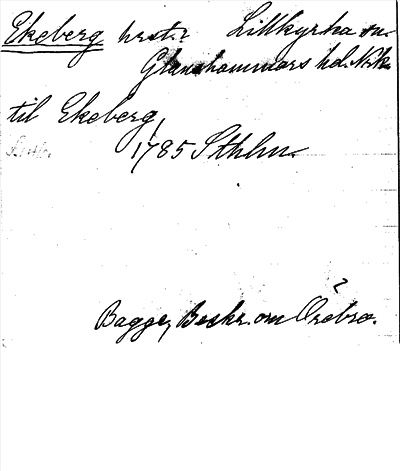 Ekeberg hrst. i Lillkyrka sn.
Glanshammars hd. Nrke
til Ekeberg,
1785 Sthlm.
Bagge, Beskr. om Örebro.